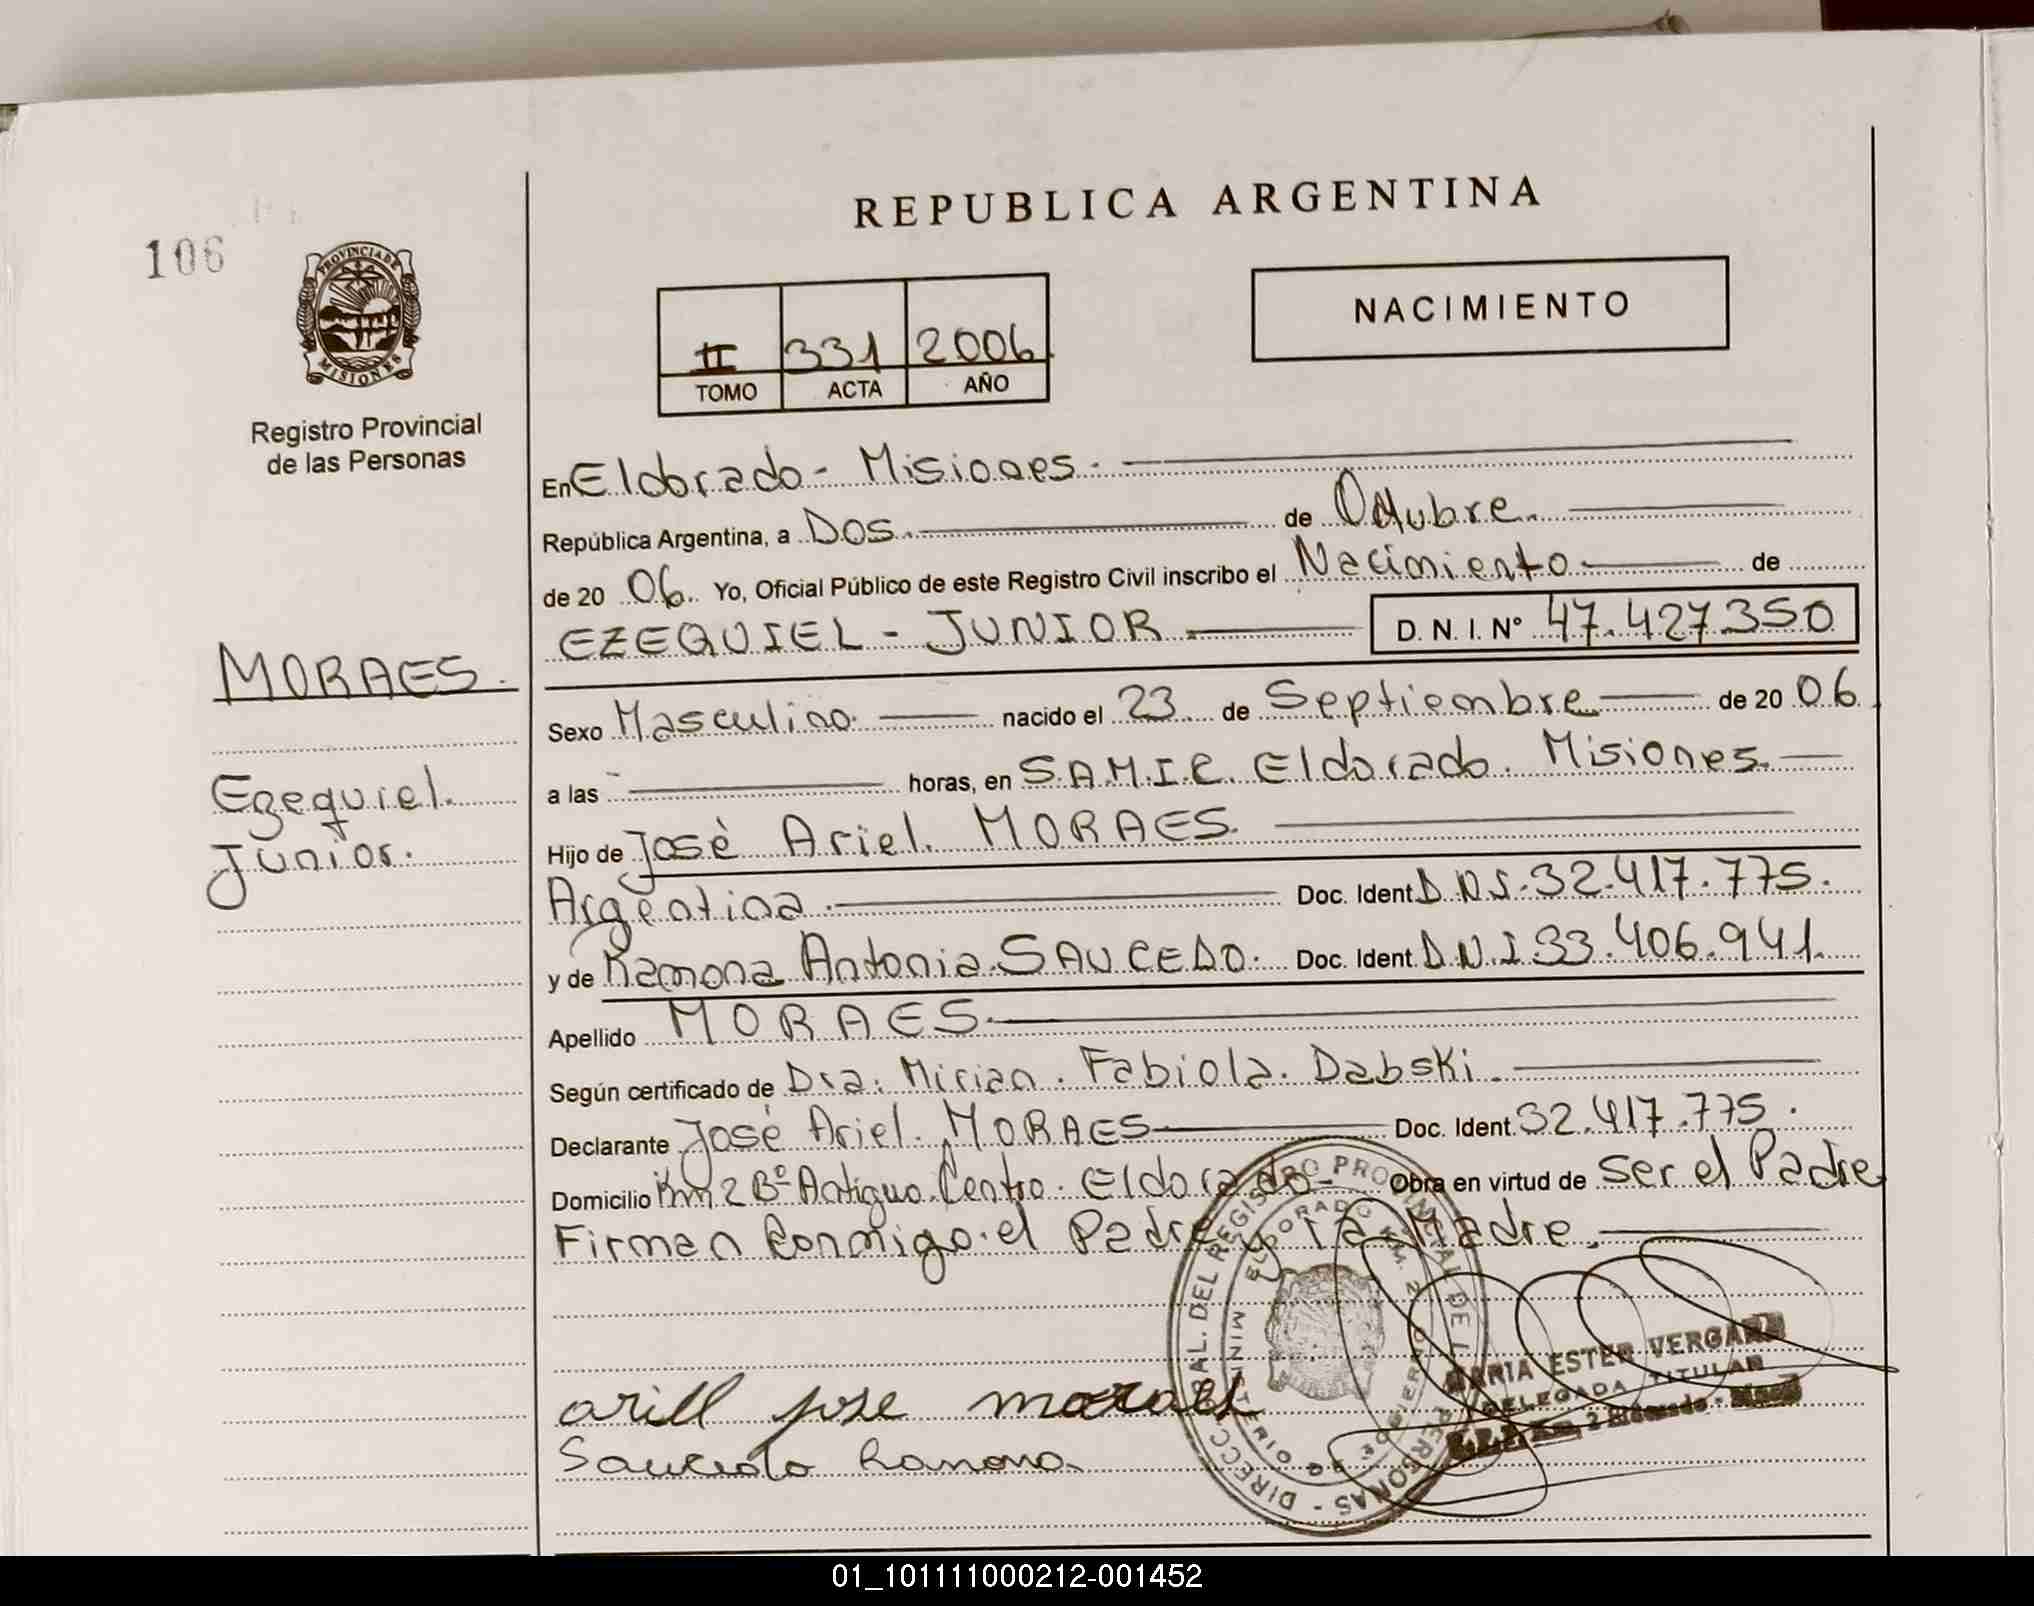 REPUBLICA ARGENTINA
106
PROVINCIA DE MISIONES
NACIMIENTO
II 331 2006
TOMO ACTA AÑO
Registro Provincial
de las Personas
En Eldorado - Misiones.
República Argentina, a Dos. de Octubre.
de 20 06. Yo, Oficial Público de este Registro Civil inscribo el Nacimiento de
EZEQUIEL - JUNIOR. D. N. I. Nº 47.427.350
MORAES.
Sexo Masculino. nacido el 23 de Septiembre de 20 06.
Ezequiel.
Junior.
a las horas, en S.A.M.I.C. Eldorado. Misiones.
Hijo de José Ariel. MORAES.
Argentina. Doc. Ident. D.N.I. 32.417.775.
y de Ramona Antonia SAUCEDO. Doc. Ident. D.N.I 33.406.941.
Apellido MORAES.
Según certificado de Dra. Mirian. Fabiola. Dabski.
Declarante José Ariel. MORAES Doc. Ident. 32.417.775.
Domicilio Km 2 Bº Antiguo. Centro. Eldorado- Obra en virtud de ser el Padre
Firman Conmigo. el Padre y la Madre.
DIRECC. GRAL. DEL REGISTRO PROVINCIAL DE LAS PERSONAS -
ELDORADO KM. 2
MINISTERIO DE GOBIERNO
MARIA ESTER VERGARA
DELEGADA TITULAR
arill jose moraes
Saucedo Ramona
01_101111000212-001452